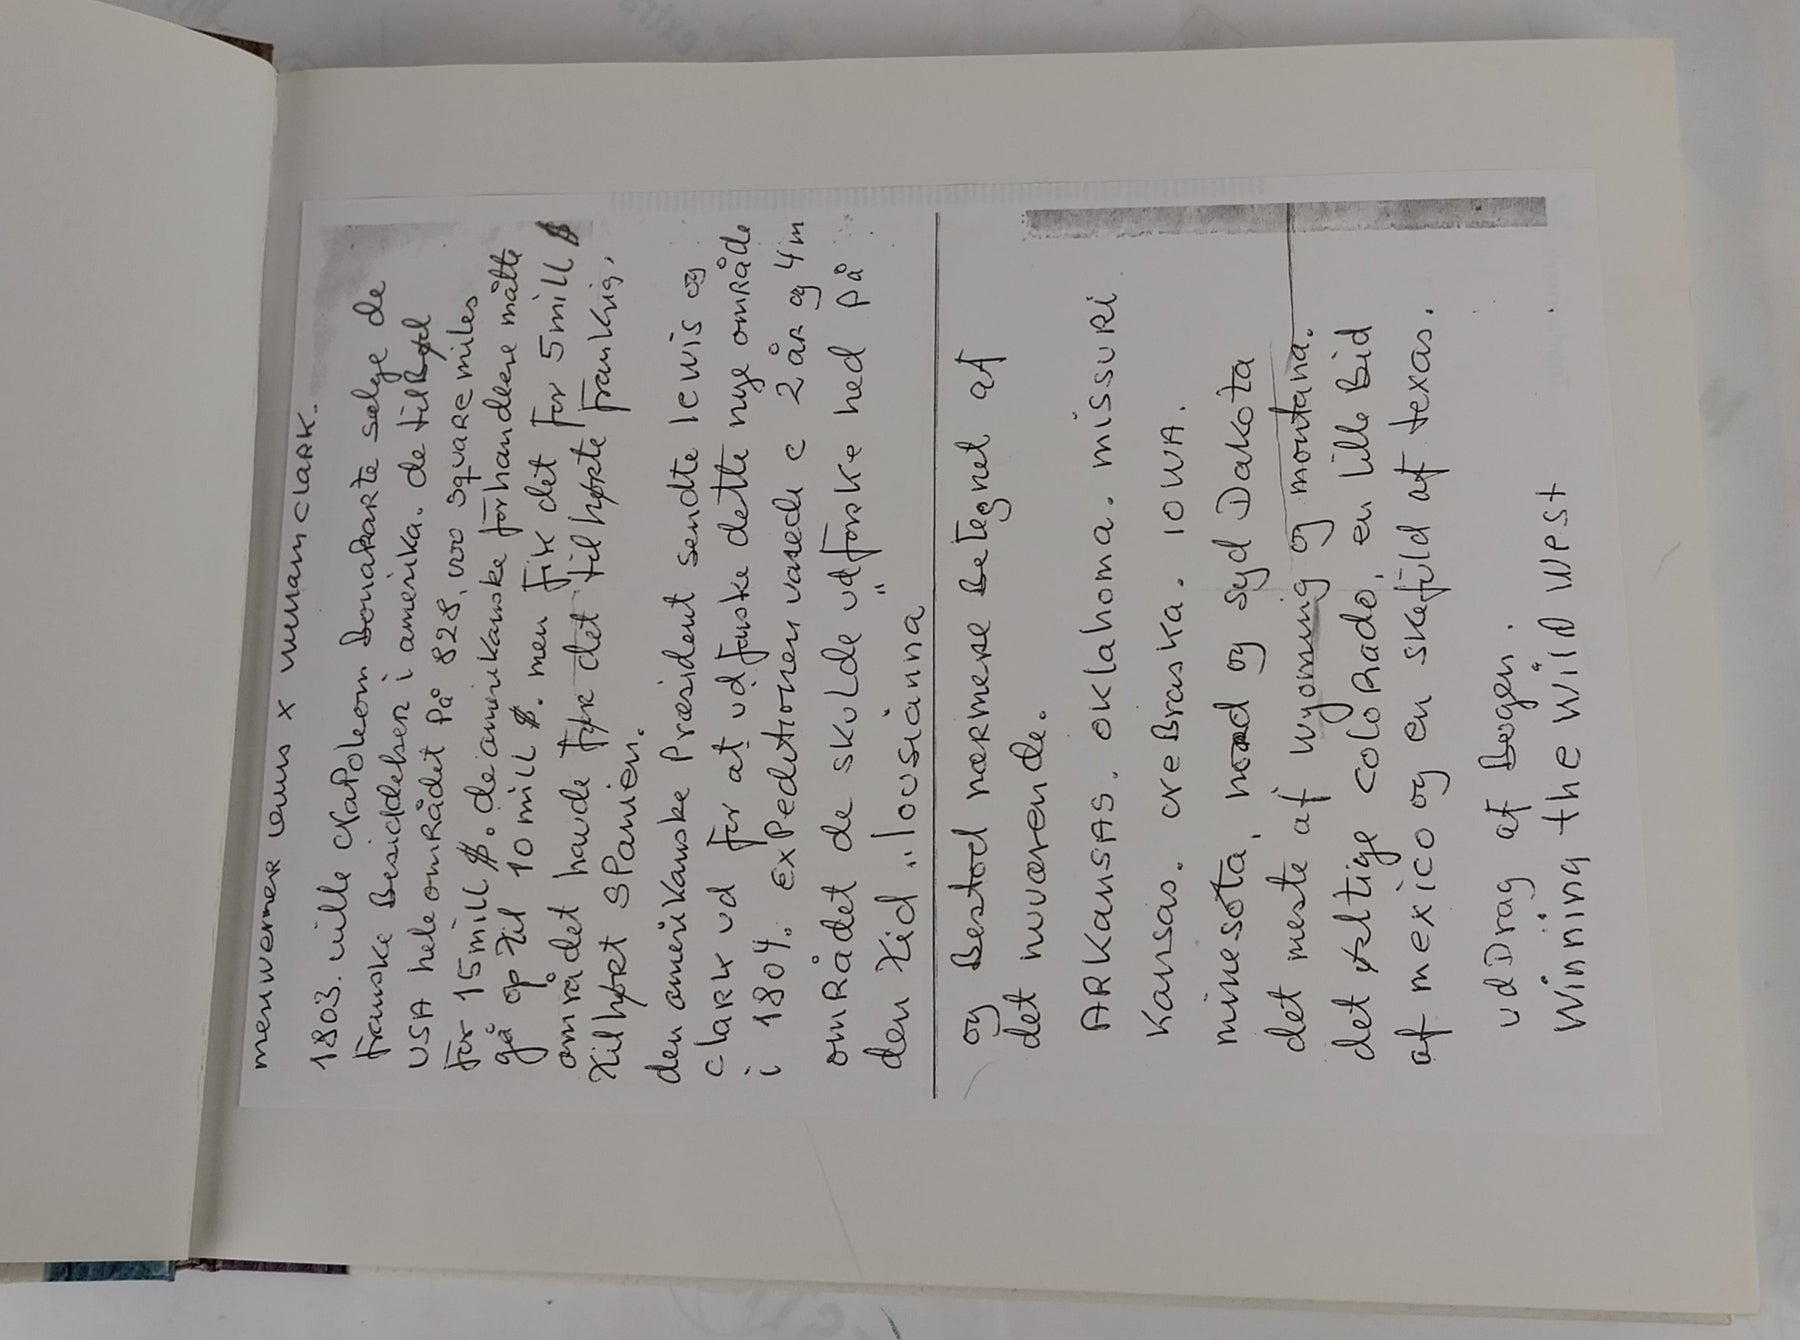 meriwermer lewis x william clark.
1803. ville Napoleom Bonaparte selge de
franske Besiddelser i amerika. de tilbød
USA hele området på 828,000 square miles
for 15 mill $. de amerikanske forhandlere måtte
gå op til 10 mill $. men fik det for 5 mill $
området havde før det tilhørte Frankrig,
tilhørt Spanien.
den amerikanske Præsident sendte lewis og
clark ud for at udforske dette nye område
i 1804. Expeditionen varede c 2 år og 4 m
området de skulde udforske hed på
den tid "lousianna"
og Bestod nærmere Betegnet af
det nuværende.
ARKansas. oklahoma. missuri
Kansas. neBraska. iowa.
minesota, nord og syd Dakota
det meste af wyoming og montana.
det østlige coloRado, en lille Bid
af mexico og en skefuld af texas.
udDrag af Bogen.
Winning the Wild West